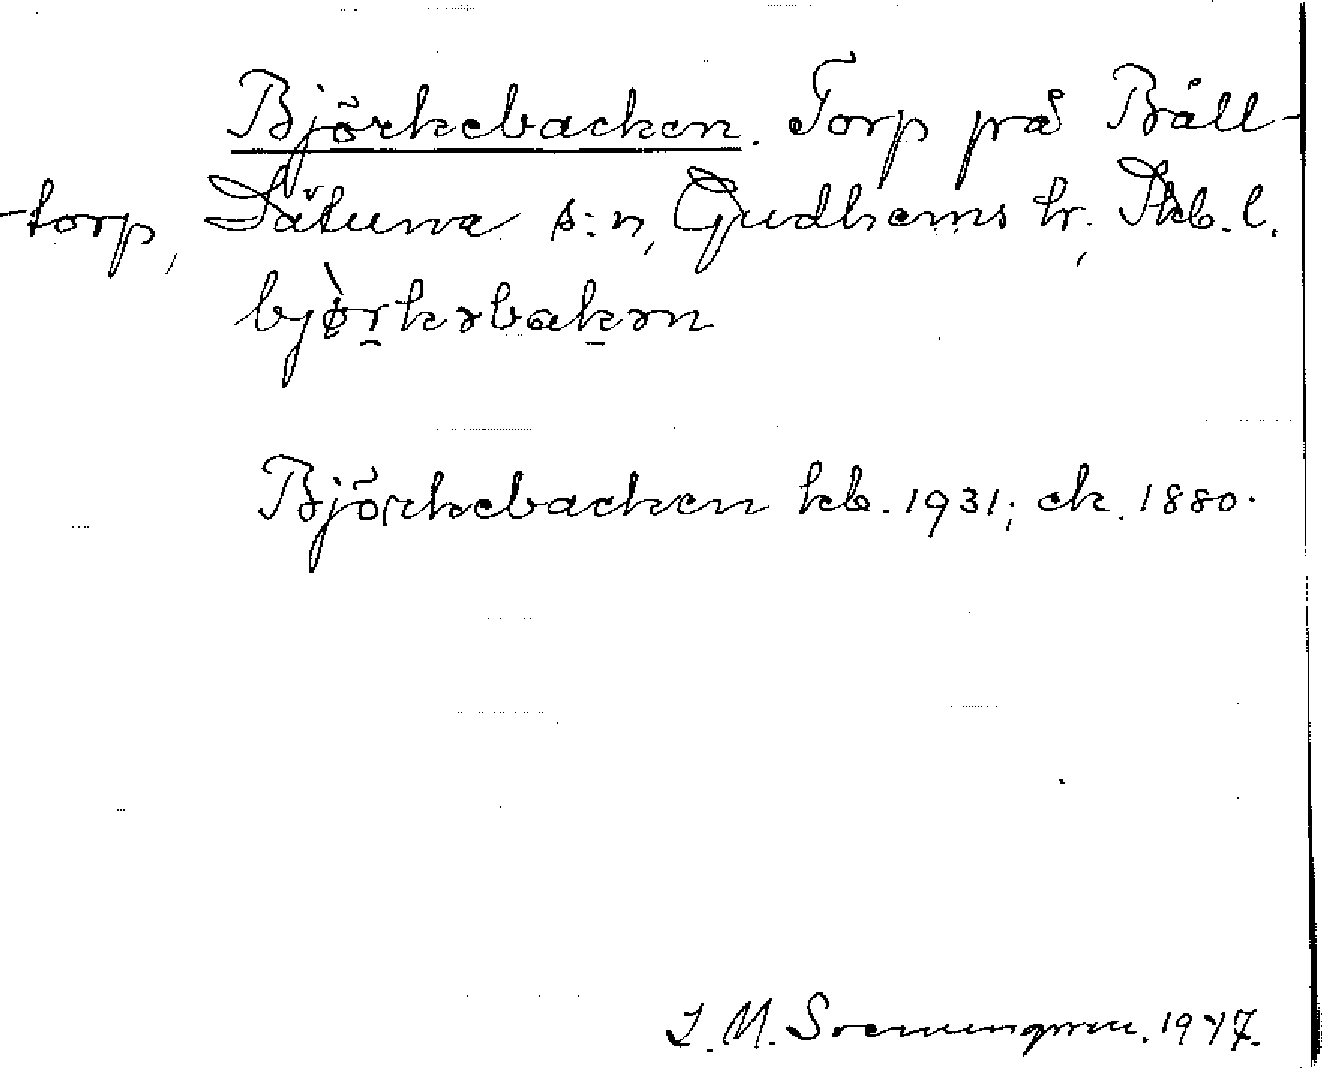 Björkebacken. Torp på Båll-
-torp, Sätuna s:n, Gudhems hr, Skb. l.
bjø̀rkəbakən
Björkebacken kb. 1931; ek. 1880.
I. M. Svenungsson. 1947.